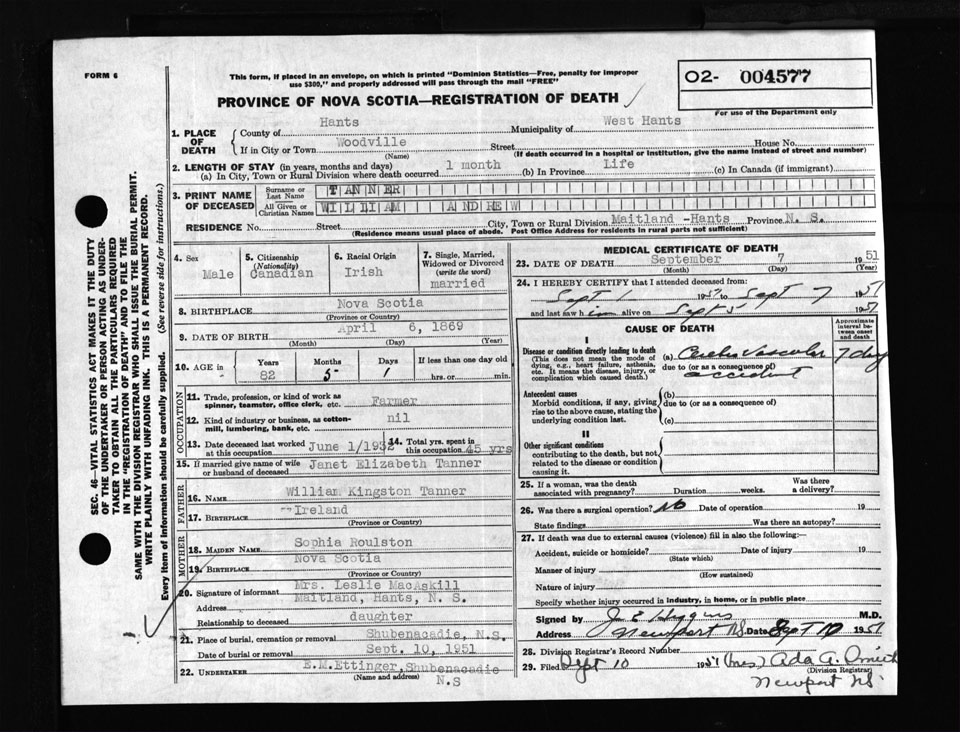 FORM 6
This form, if placed in an envelope, on which is printed "Dominion Statistics—Free, penalty for improper
use $300," and properly addressed will pass through the mail "FREE"
O2- 004577
PROVINCE OF NOVA SCOTIA—REGISTRATION OF DEATH
For use of the Department only
1. PLACE OF DEATH
County of Hants Municipality of West Hants
If in City or Town Woodville Street House No.
(Name) (If death occurred in a hospital or institution, give the name instead of street and number)
2. LENGTH OF STAY (in years, months and days)
(a) In City, Town or Rural Division where death occurred 1 month (b) In Province Life (c) In Canada (if immigrant)
3. PRINT NAME OF DECEASED
Surname or Last Name TANNER
All Given or Christian Names WILLIAM ANDREW
RESIDENCE No. Street City, Town or Rural Division Maitland -Hants Province N. S.
(Residence means usual place of abode. Post Office Address for residents in rural parts not sufficient)
4. Sex Male
5. Citizenship (Nationality) Canadian
6. Racial Origin Irish
7. Single, Married, Widowed or Divorced (write the word) married
8. BIRTHPLACE Nova Scotia
(Province or Country)
9. DATE OF BIRTH April 6, 1869
(Month) (Day) (Year)
10. AGE in Years 82 Months 5 Days 1 If less than one day old hrs. or min.
OCCUPATION
11. Trade, profession, or kind of work as spinner, teamster, office clerk, etc. Farmer
12. Kind of industry or business, as cotton-mill, lumbering, bank, etc. nil
13. Date deceased last worked at this occupation June 1/1932
14. Total yrs. spent in this occupation 45 yrs
15. If married give name of wife or husband of deceased Janet Elizabeth Tanner
FATHER
16. NAME William Kingston Tanner
17. BIRTHPLACE Ireland
(Province or Country)
MOTHER
18. MAIDEN NAME Sophia Roulston
19. BIRTHPLACE Nova Scotia
(Province or Country)
20. Signature of informant Mrs. Leslie MacAskill
Address Maitland, Hants, N. S.
Relationship to deceased daughter
21. Place of burial, cremation or removal Shubenacadie, N.S.
Date of burial or removal Sept. 10, 1951
22. UNDERTAKER E.M.Ettinger, Shubenacadie
(Name and address) N.S
MEDICAL CERTIFICATE OF DEATH
23. DATE OF DEATH September 7 1951
(Month) (Day) (Year)
24. I HEREBY CERTIFY that I attended deceased from:
Sept 1 1951 to Sept 7 1951
and last saw him alive on Sept 5 1951
CAUSE OF DEATH
Approximate interval between onset and death
I
Disease or condition directly leading to death (a) Cerebro Vascular 7 day
(This does not mean the mode of dying, e.g., heart failure, asthenia, etc. It means the disease, injury, or complication which caused death.)
due to (or as a consequence of) accident
Antecedent causes (b)
Morbid conditions, if any, giving rise to the above cause, stating the underlying condition last.
due to (or as a consequence of)
(c)
II
Other significant conditions
contributing to the death, but not related to the disease or condition causing it.
25. If a woman, was the death associated with pregnancy? Duration weeks. Was there a delivery?
26. Was there a surgical operation? No Date of operation 19
State findings Was there an autopsy?
27. If death was due to external causes (violence) fill in also the following:—
Accident, suicide or homicide? Date of injury 19
(State which)
Manner of injury
(How sustained)
Nature of injury
Specify whether injury occurred in industry, in home, or in public place
Signed by J. E. Higgins M.D.
Address Newport NS Date Sept 10 1951
28. Division Registrar's Record Number
29. Filed Sept 10 1951 (Mrs) Ada A.
(Division Registrar)
Newport NS.
SEC. 46—VITAL STATISTICS ACT MAKES IT THE DUTY
OF THE UNDERTAKER OR PERSON ACTING AS UNDER-
TAKER TO OBTAIN ALL THE PARTICULARS REQUIRED
IN THE "REGISTRATION OF DEATH" AND TO FILE THE
SAME WITH THE DIVISION REGISTRAR WHO SHALL ISSUE THE BURIAL PERMIT.
WRITE PLAINLY WITH UNFADING INK. THIS IS A PERMANENT RECORD.
Every item of information should be carefully supplied. (See reverse side for instructions.)